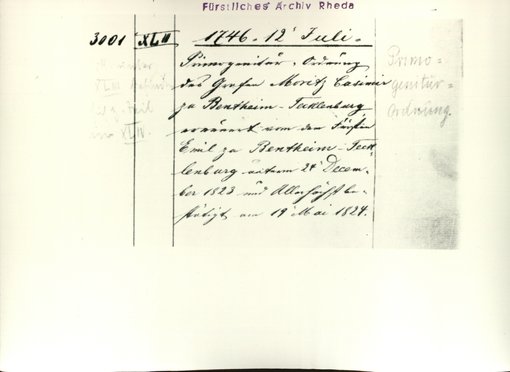 Fürstliches Archiv Rheda
3001 XL II 1746. 12t Juli.
Primogenitur-Ordnung
des Grafen Moritz Casimir
zu Bentheim-Tecklenburg
erneuert von dem Fürsten
Emil zu Bentheim-Teck-
lenburg unterm 24t Decem-
ber 1823 und Allerhöchst be-
stätigt am 19t Mai 1824.
Primo-
genitur-
ordnung.